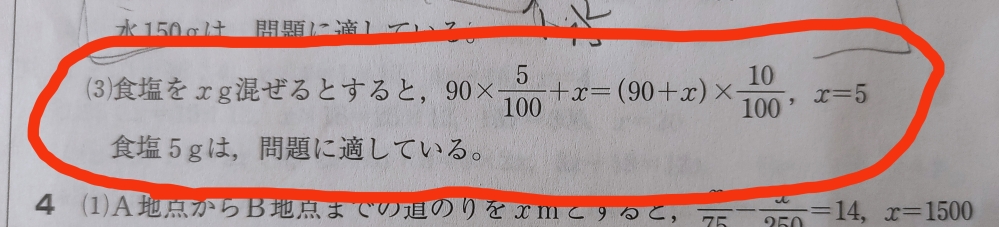 水150gは，問題に適している。
(3)食塩を x g混ぜるとすると，90×5/100+x=(90+x)×10/100，x=5
食塩5gは，問題に適している。
4 (1)A地点からB地点までの道のりを x mとすると，x/75−x/250=14，x=1500